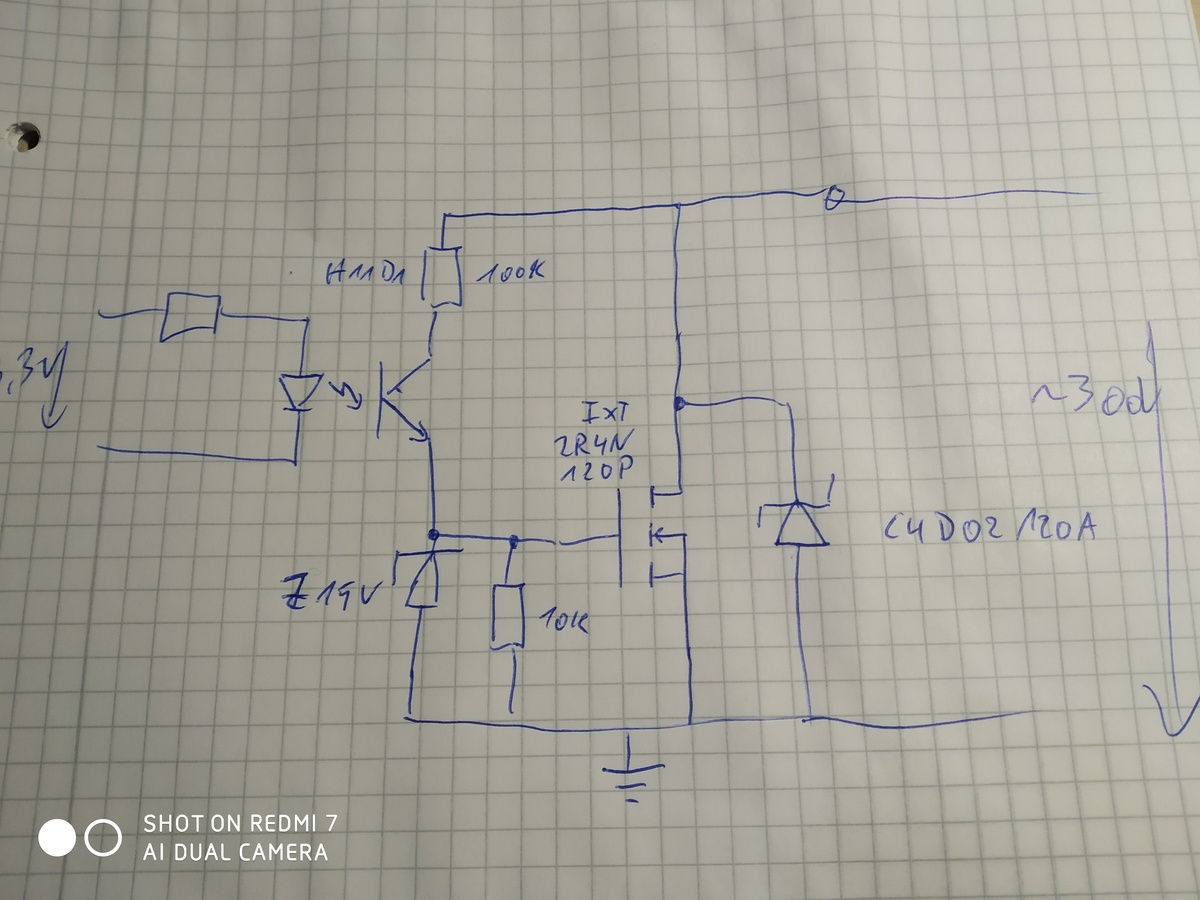 H11D1
100K
,3V
IXT
2R4N
120P
C4D02120A
10K
SHOT ON REDMI 7
AI DUAL CAMERA